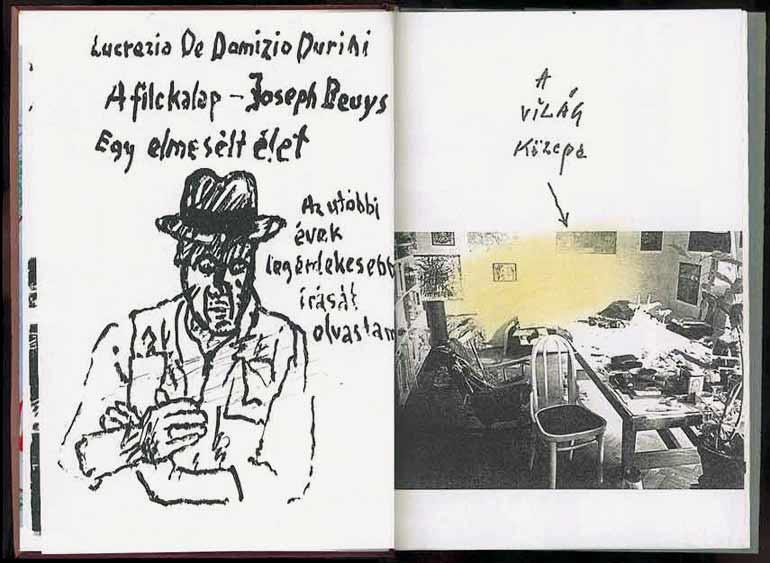 Lucrezia De Domizio Durini
A filckalap - Joseph Beuys
Egy elmesélt élet
Az utóbbi
évek
legérdekesebb
írását
olvastam
A
VILÁG
Közepe